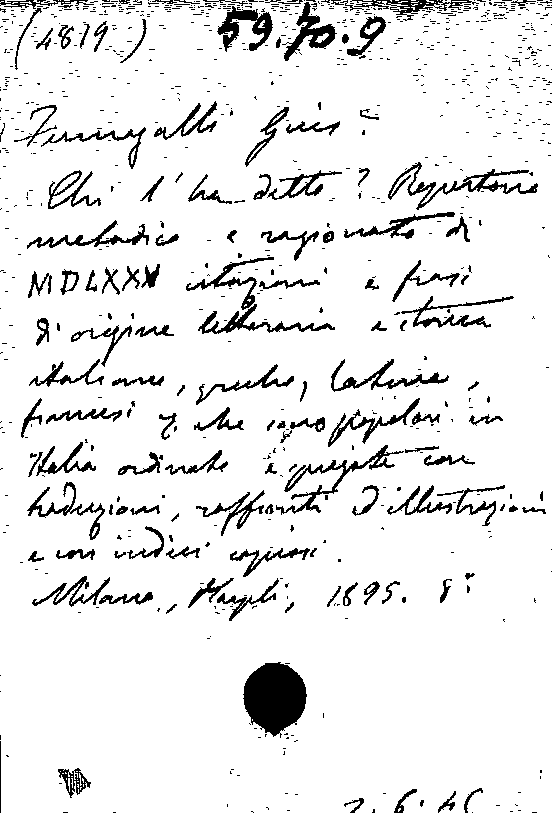 (4819) 59.70.9
Fumagalli Gius.
Chi l'ha detto? Repertorio
metodico e ragionato di
MDLXXV citazioni e frasi
di origine letteraria e storica
italiane, greche, latine,
francesi &. che sono popolari in
Italia ordinate e spiegate con
traduzioni, raffronti ed illustrazioni
e con indici copiosi.
Milano, Hoepli, 1895. 8°